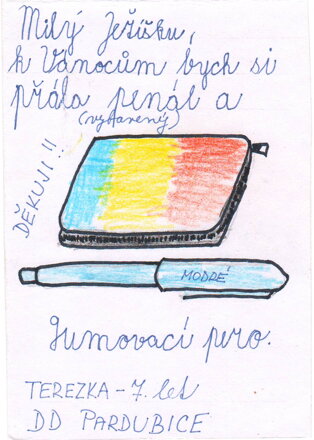 Milý Ježíšku,
k Vánocům bych si
přála penál a
(vybavený)
DĚKUJI!!
MODRÉ
Gumovací pero.
TEREZKA - 7. let
DD PARDUBICE